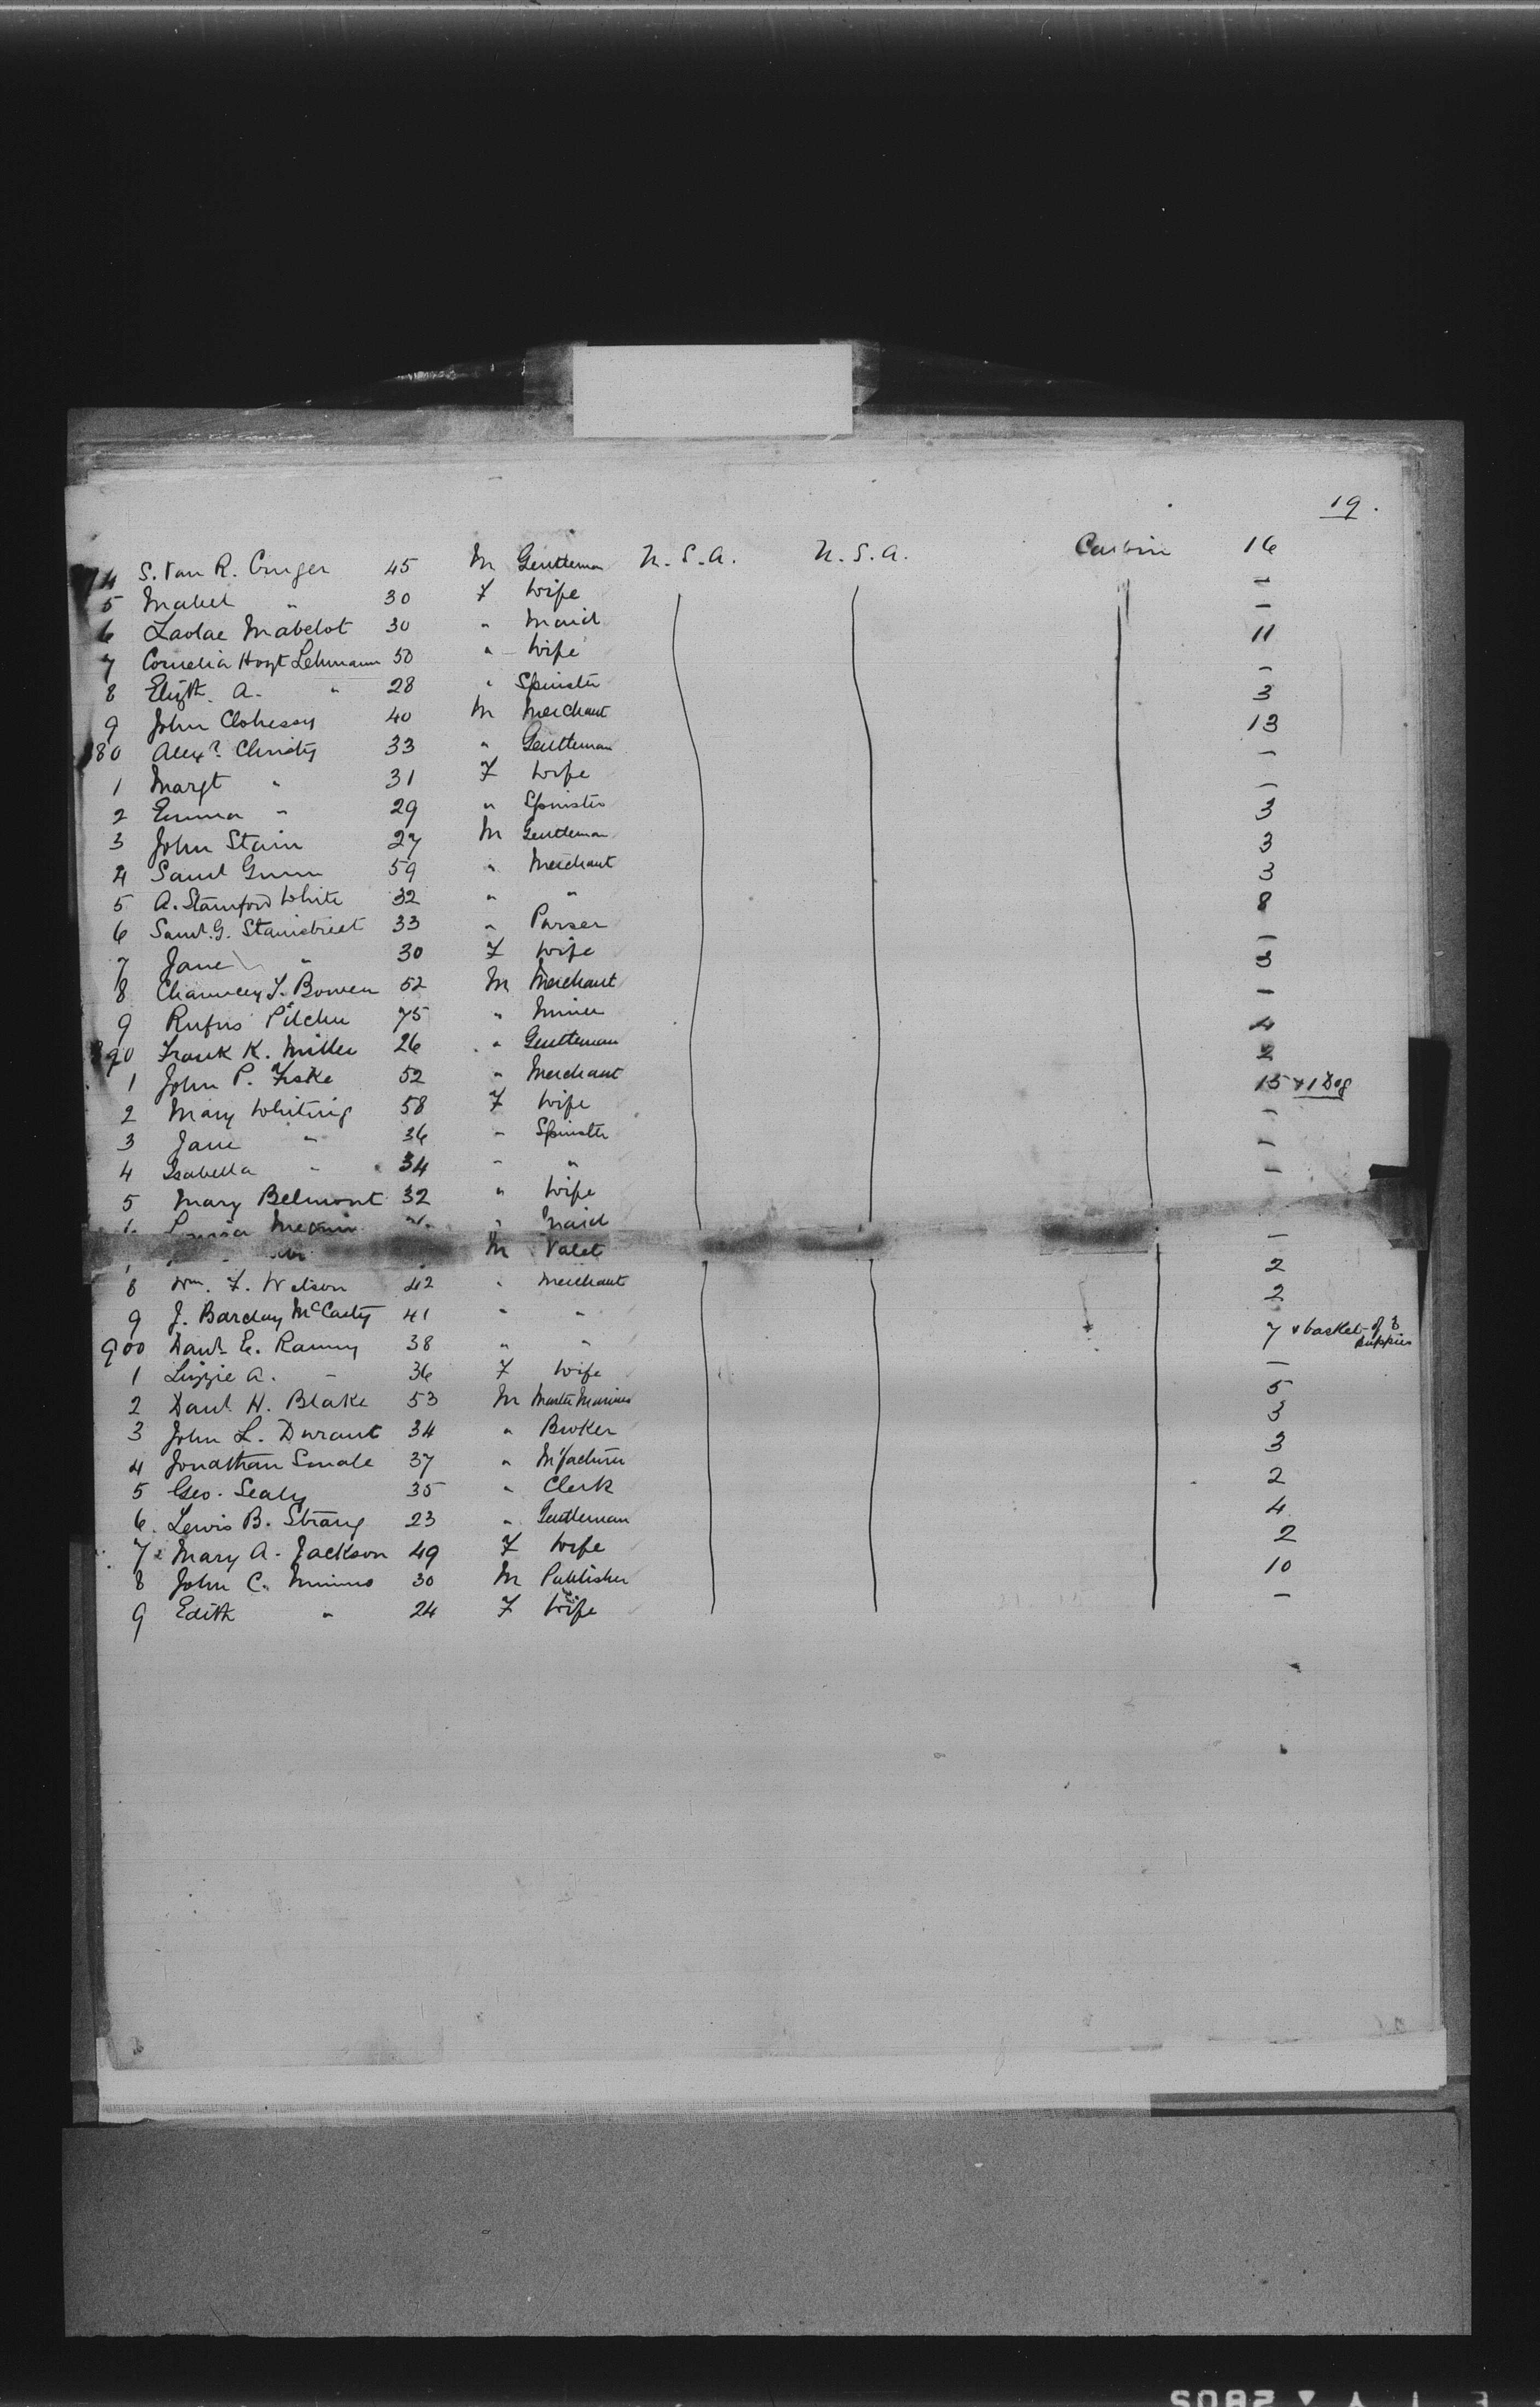 19.
74 S. Van R. Cruger 45 M Gentleman U.S.A. U.S.A. Cabin 16
5 Mabel " 30 F Wife —
6 Mabelot 30 " Maid —
7 Cornelia Hoyt Lehmann 50 " Wife 11
8 Elizth. A. " 28 " Spinster —
9 John Clohessy 40 M Merchant 3
880 Alexr. Christy 33 " Gentleman 13
1 Margt " 31 F Wife —
2 Emma " 29 " Spinster —
3 John Stain 27 M Gentleman 3
4 Saml Gunn 59 " Merchant 3
5 A. Stamford White 32 " " 3
6 Saml. G. Stanistreet 33 " Purser 8
7 Jane " 30 F Wife —
8 Chauncey T. Bowen 52 M Merchant 3
9 Rufus Pilcher 75 " Miner —
890 Frank K. Miller 26 " Gentleman 4
1 John P. Fiske 52 " Merchant 2
2 Mary Whiting 58 F Wife 15 + 1 Dog
3 Jane " 36 " Spinster —
4 Isabella " 34 " " —
5 Mary Belmont 32 " Wife —
" Maid
M Valet —
8 Wm. F. Watson 42 " Merchant 2
9 J. Barclay McCarty 41 " " 2
900 Danl. E. Ranny 38 " " 7 & basket of 3 puppies
1 Lizzie A. " 36 F Wife —
2 Danl. H. Blake 53 M Master Mariner 5
3 John L. Durant 34 " Broker 3
4 Jonathan Smale 37 " M'facturer 3
5 Geo. Sealy 35 " Clerk 2
6 Lewis B. Strang 23 " Gentleman 4
7 Mary A. Jackson 49 F Wife 2
8 John C. Nimmo 30 M Publisher 10
9 Edith " 24 F Wife —